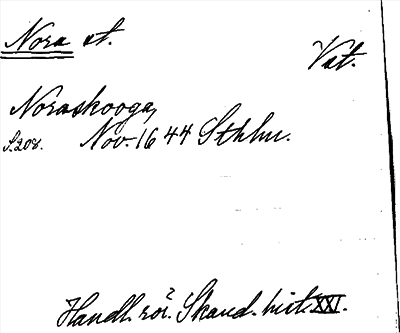 Nora st.
Vst.
Noraskooga,
S. 208. Nov. 1644 Sthlm.
Handl. rör. Skand. hist. XXI.